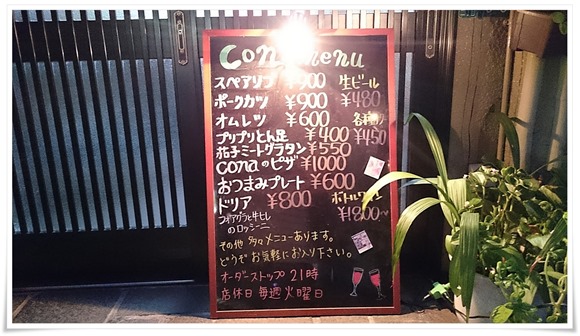 con menu
スペアリブ ¥900 生ビール
ポークカツ ¥900 ¥480
オムレツ ¥600
プリプリとん足 ¥400 ¥450
茄子ミートグラタン ¥550
conaのピザ ¥1000
おつまみプレート ¥600
ドリア ¥800 ボトルワイン
フォアグラと牛ヒレ ¥1800〜
のロッシーニ
その他 多々メニューあります。
どうぞ お気軽にお入り下さい。
オーダーストップ 21時
店休日 毎週火曜日